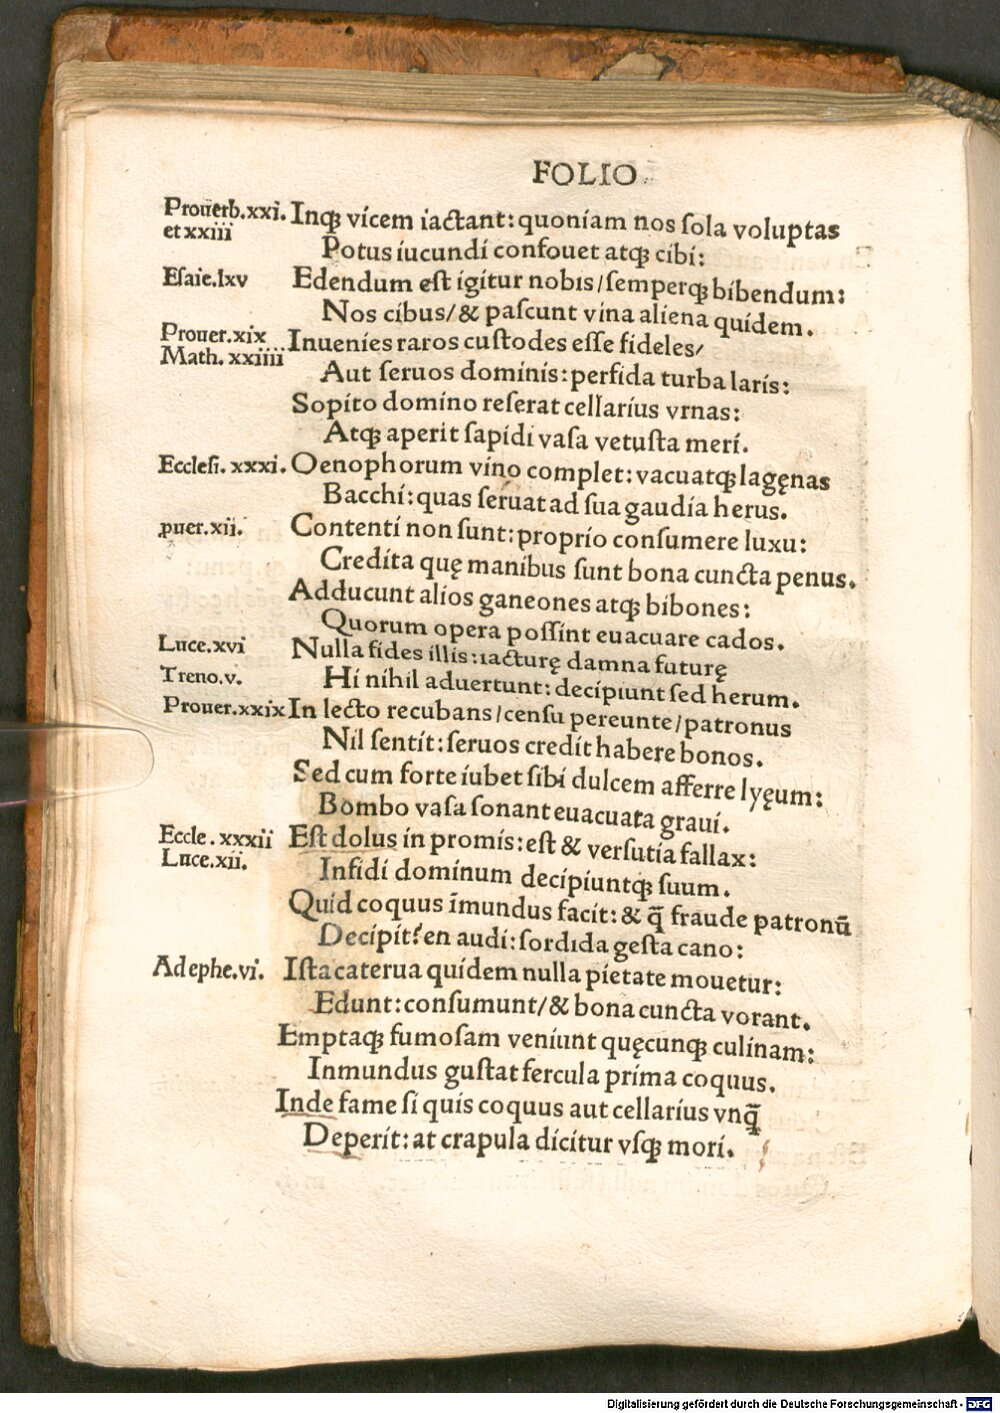 FOLIO
Prouerb.xxi. Inqȝ vicem iactant: quoniam nos ſola voluptas
et xxiii
Potus iucundi confouet atqȝ cibi:
Eſaie.lxv Edendum eſt igitur nobis/ſemperqȝ bibendum:
Nos cibus/& paſcunt vina aliena quidem.
Prouer.xix Inuenies raros cuſtodes eſſe fideles/
Math. xxiiii
Aut ſeruos dominis: perfida turba laris:
Sopito domino reſerat cellarius vrnas:
Atqȝ aperit ſapidi vaſa vetuſta meri.
Eccleſi. xxxi. Oenophorum vino complet: vacuatqȝ lagęnas
Bacchi: quas ſeruat ad ſua gaudia herus.
ꝓuer.xii. Contenti non ſunt: proprio conſumere luxu:
Credita quę manibus ſunt bona cuncta penus.
Adducunt alios ganeones atqȝ bibones:
Quorum opera poſſint euacuare cados.
Luce.xvi Nulla fides illis: iacturę damna futurę
Treno.v. Hi nihil aduertunt: decipiunt ſed herum.
Prouer.xxix In lecto recubans/cenſu pereunte/patronus
Nil ſentit: ſeruos credit habere bonos.
Sed cum forte iubet ſibi dulcem afferre lyęum:
Bombo vaſa ſonant euacuata graui.
Eccle. xxxii Eſt dolus in promis: eſt & verſutia fallax:
Luce.xii. Infidi dominum decipiuntqȝ ſuum.
Quid coquus īmundus facit: & q̄ fraude patronū
Decipit? en audi: ſordida geſta cano:
Ad ephe.vi. Iſta caterua quidem nulla pietate mouetur:
Edunt: conſumunt/& bona cuncta vorant.
Emptaqȝ fumoſam veniunt quęcunqȝ culinam:
Inmundus guſtat fercula prima coquus.
Inde fame ſi quis coquus aut cellarius vnq̄
Deperit: at crapula dicitur vſqȝ mori.
Digitalisierung gefördert durch die Deutsche Forschungsgemeinschaft - DFG